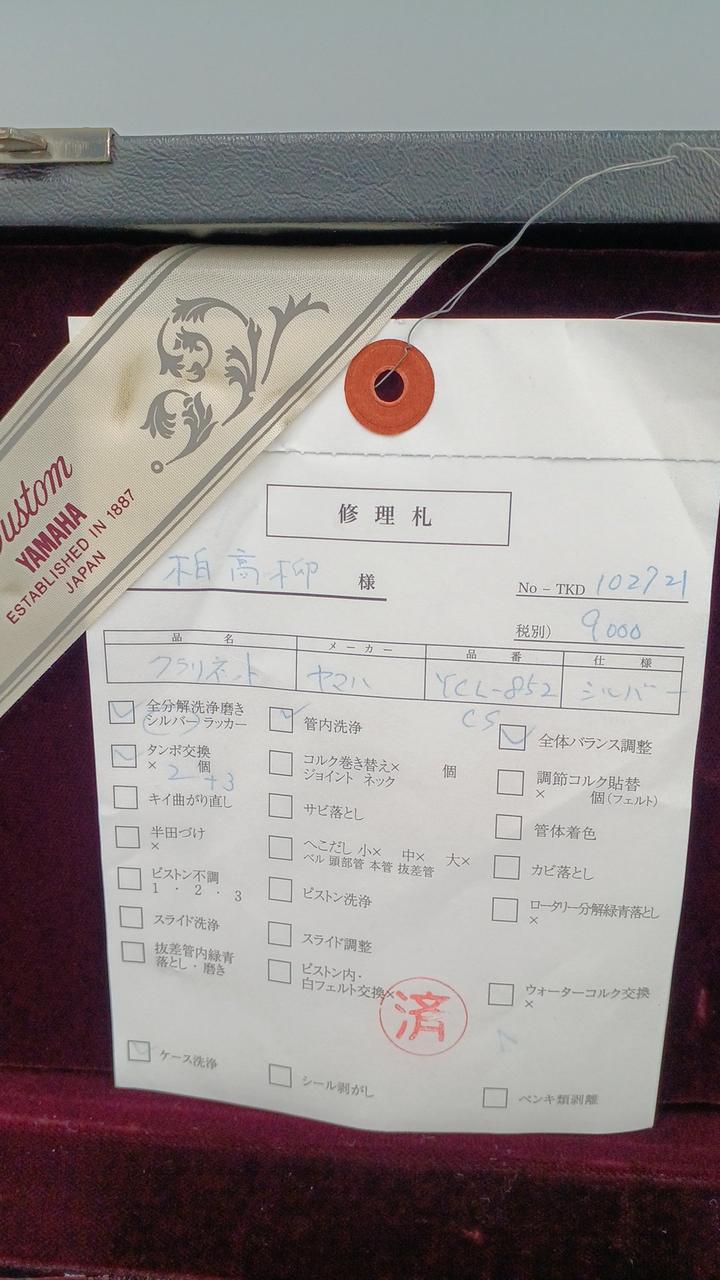 Custom
YAMAHA
ESTABLISHED IN 1887
JAPAN
修理札
柏高柳 様
No-TKD 102721
税別) 9000
品名 メーカー 品番 仕様
クラリネット ヤマハ YCL-852 シルバー
CS
全分解洗浄磨き
シルバー ラッカー
管内洗浄
全体バランス調整
タンポ交換
× 2 個
+3
コルク巻き替え× 個
ジョイント ネック
調節コルク貼替
× 個(フェルト)
キイ曲がり直し
サビ落とし
管体着色
半田づけ
×
へこだし 小× 中× 大×
ベル 頭部管 本管 抜差管
カビ落とし
ピストン不調
1・2・3
ピストン洗浄
ロータリー分解緑青落とし
×
スライド洗浄
スライド調整
抜差管内緑青
落とし・磨き
ピストン内・
白フェルト交換×
済
ウォーターコルク交換
×
ケース洗浄
シール剥がし
ペンキ類剥離